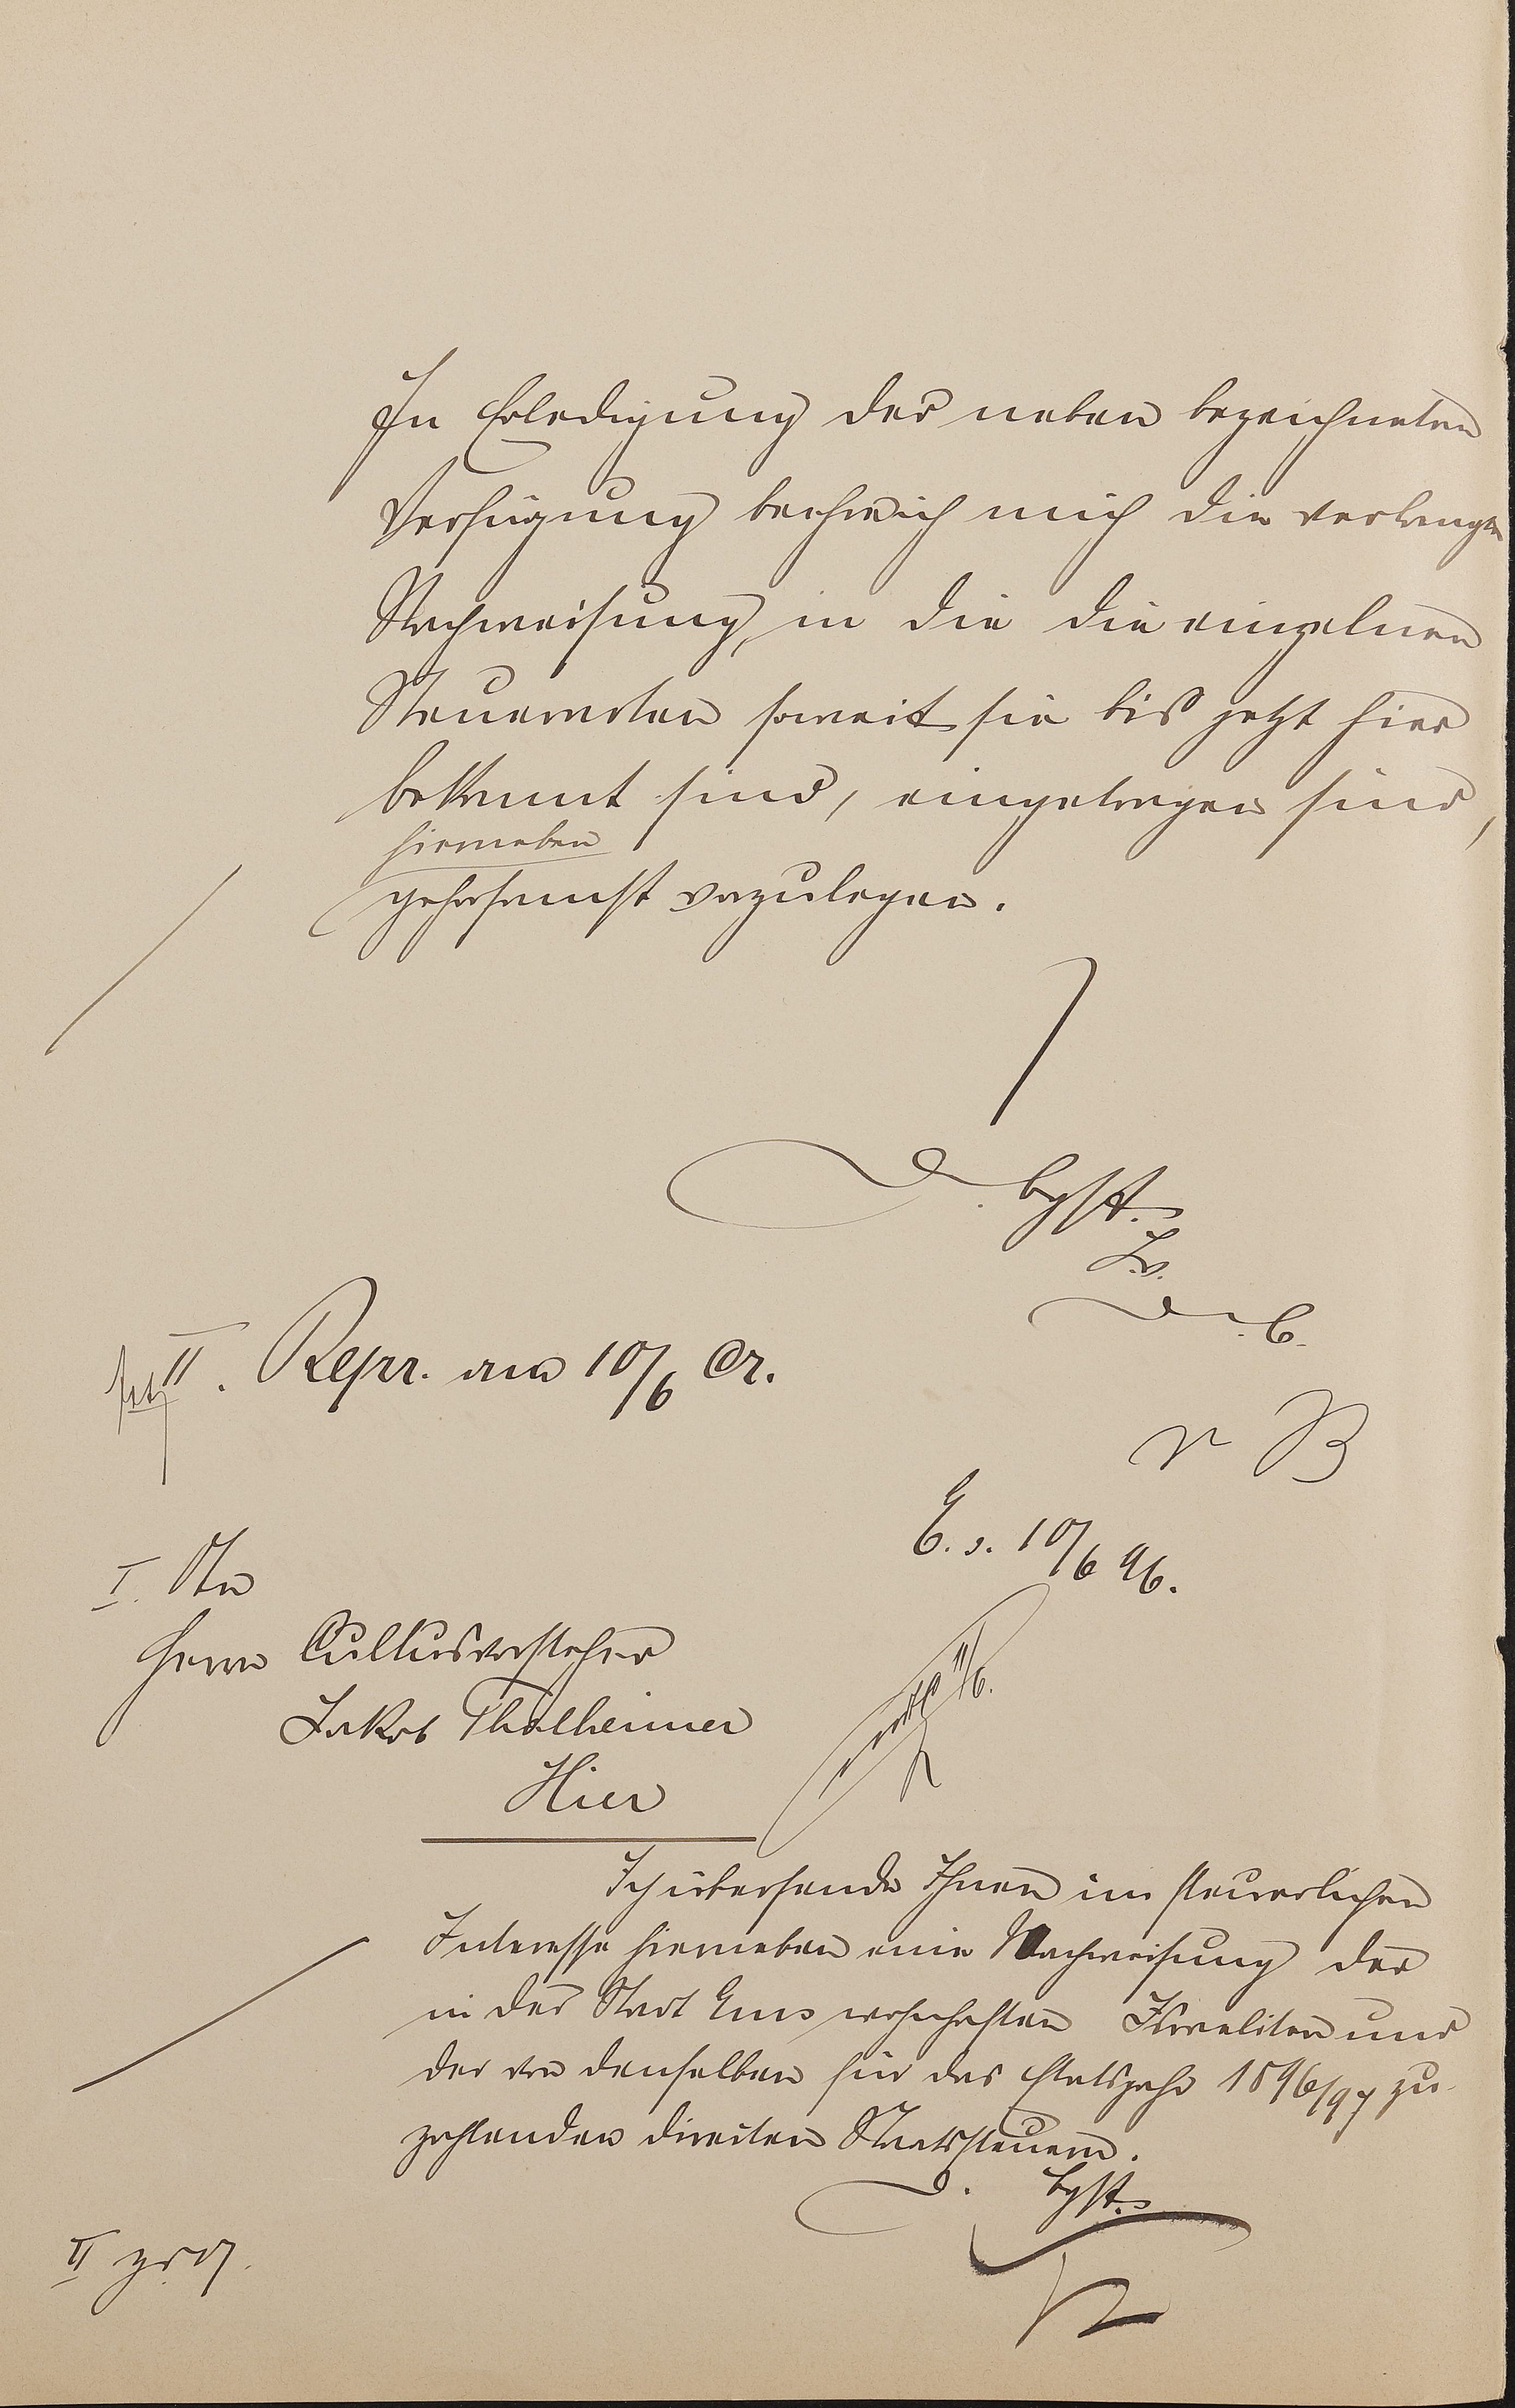 In Erledigung der neben bezeichneten
Verfügung beehre ich mich die verlangte
Nachweisung, in die die einzelnen
Steuerarten soweit sie bis jetzt hier
bekannt sind, eingetragen sind,
hierneben
gehorsamst vorzulegen.
D. BgSt.
I.V.
D. B.
II. Repr. am 10/6 Cr.
v B
E. s. 10/6 96.
11/6.
I. An
Herrn Cultusvorsteher
Jakob Thalheimer
Hier
Ich übersende Ihnen im steuerlichen
Interesse hierneben eine Nachweisung der
in der Stadt Ems wohnhaften Israeliten und
der von denselben für das Etatsjahr 1896/97 zu
zahlenden direkten Staatssteuern.
D. BgSt.
II z. d. A.